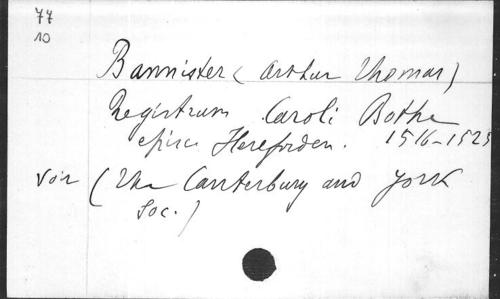 77
10
Bannister (Arthur Thomas)
Registrum Caroli Bothe
episc Hereforden. 1516-1525
(The Canterbury and York
Soc.)